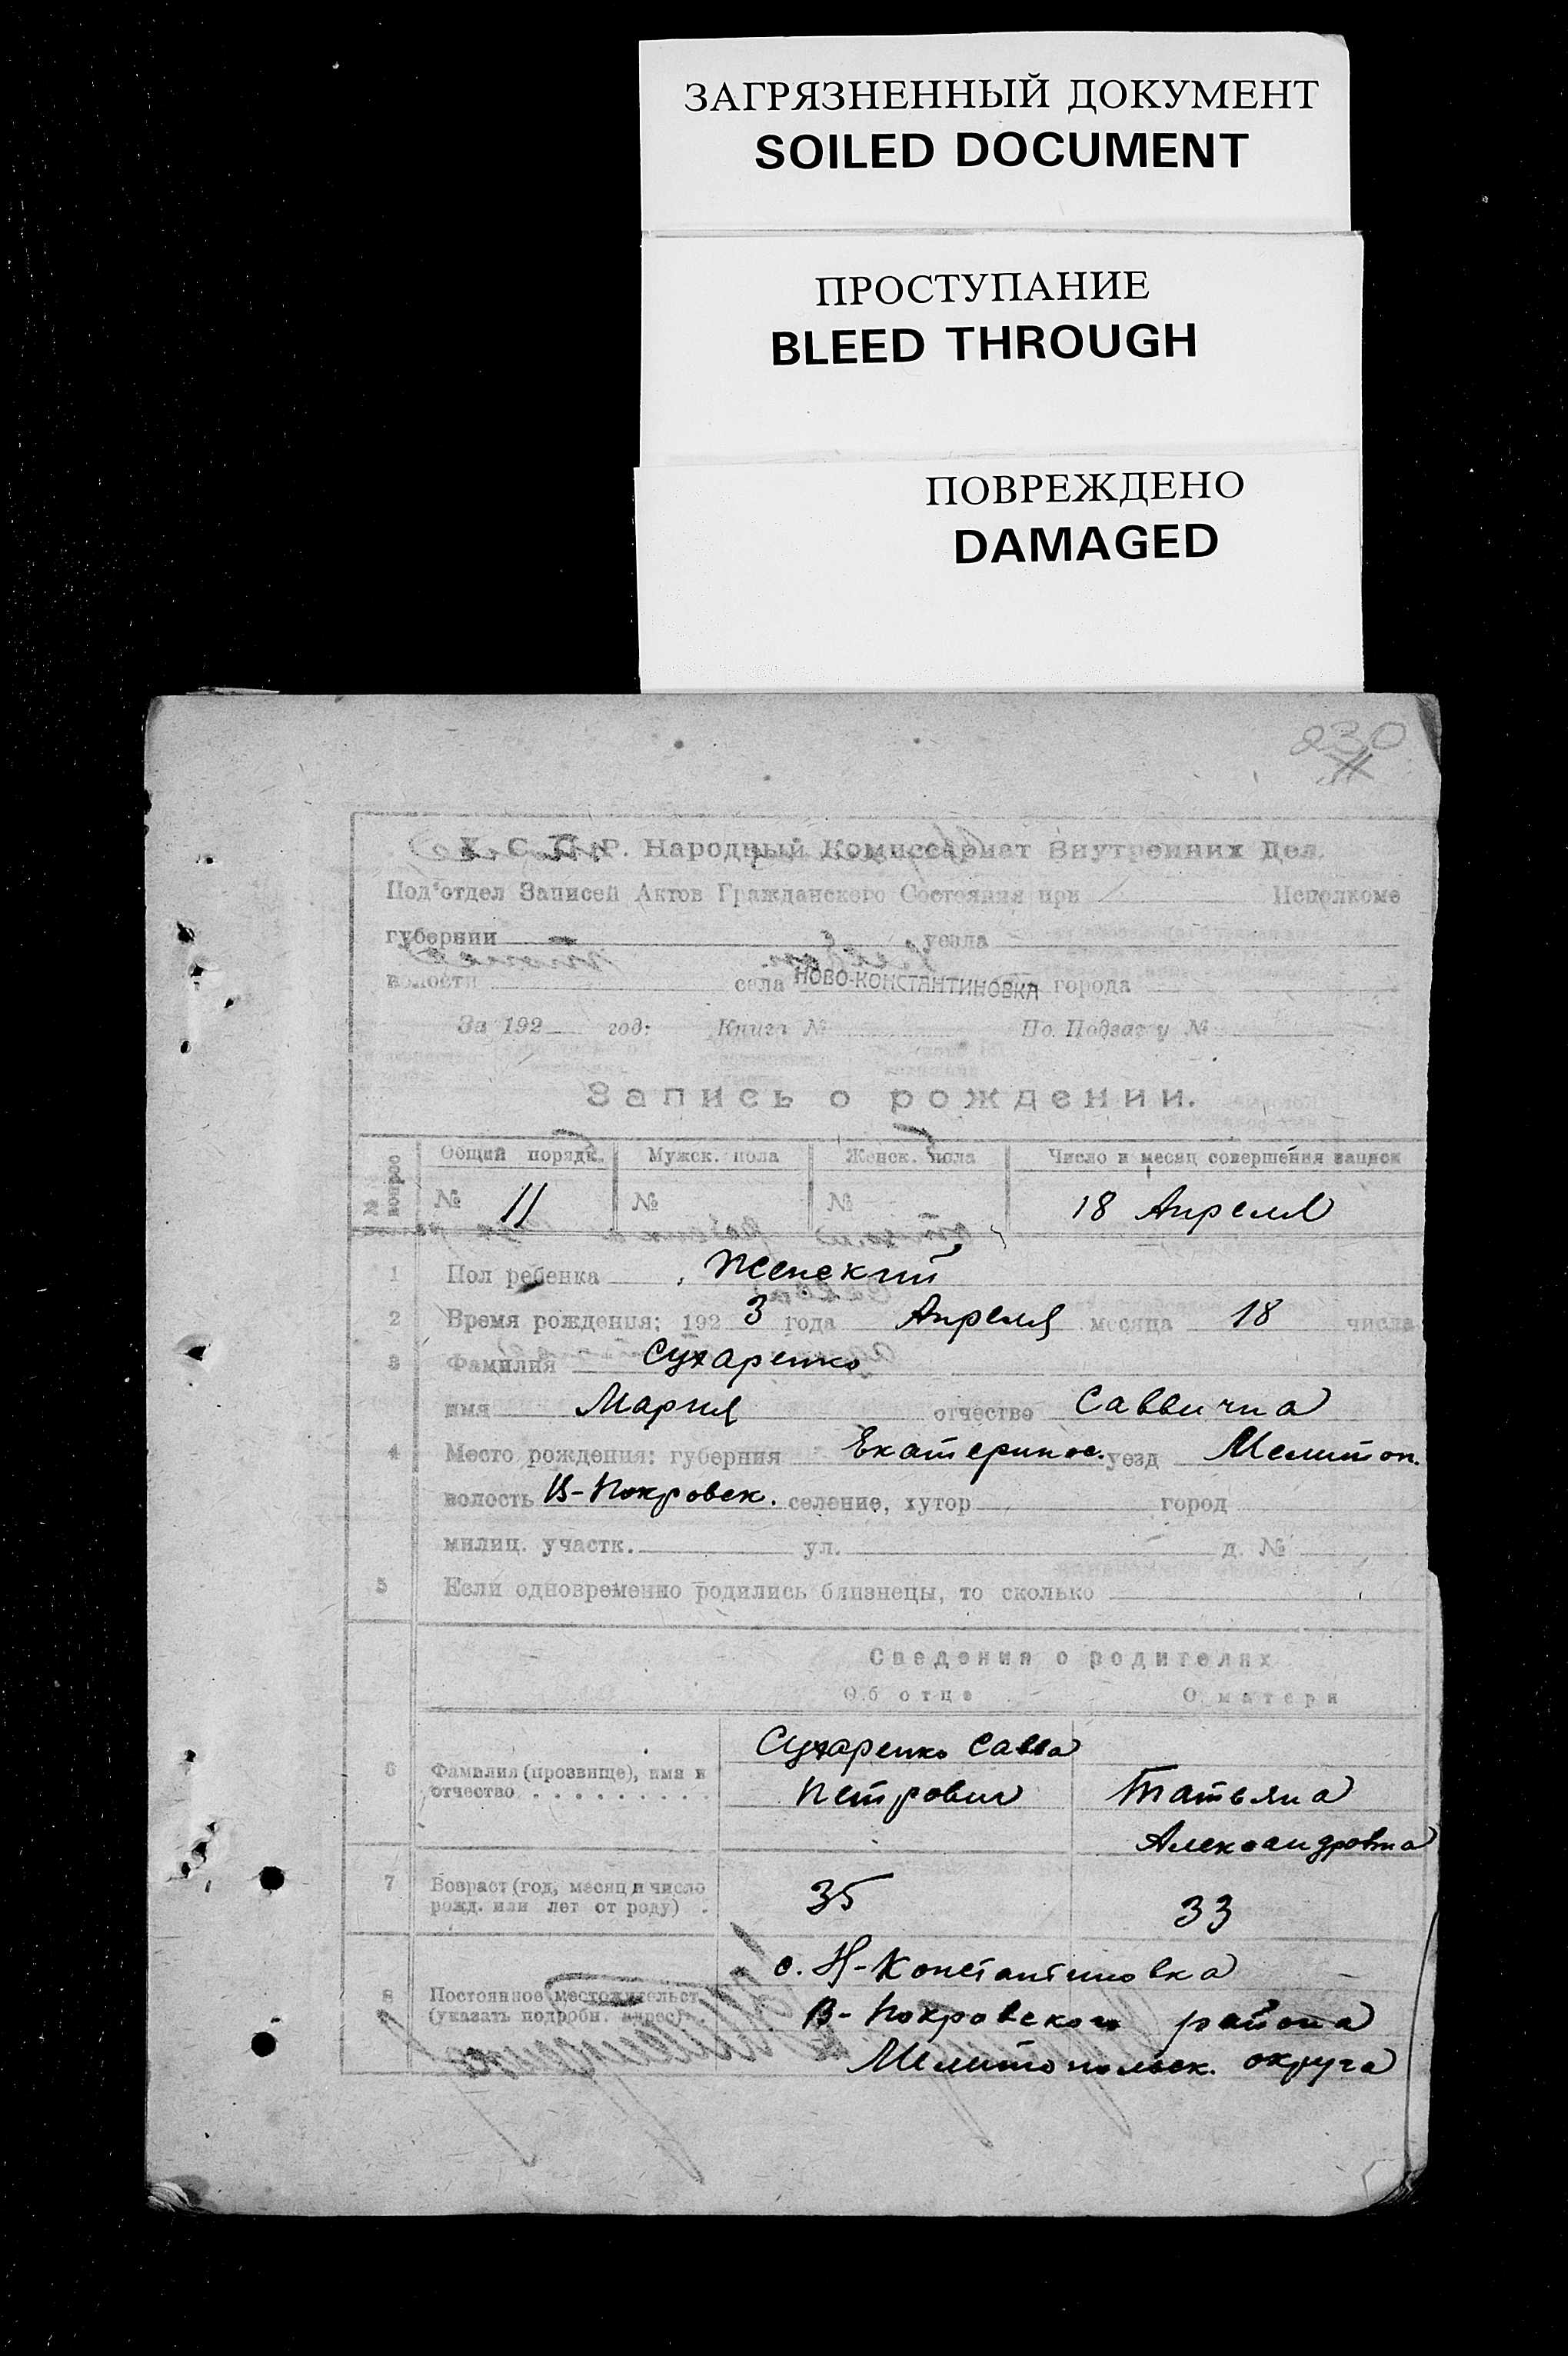 ЗАГРЯЗНЕННЫЙ ДОКУМЕНТ
SOILED DOCUMENT
ПРОСТУПАНИЕ
BLEED THROUGH
ПОВРЕЖДЕНО
DAMAGED
230
У. С. С. Р. Народный Комиссариат Внутренних Дел.
Под'отдел Записей Актов Гражданского Состояния при Исполкоме
губернии уезда
волости села НОВО-КОНСТАНТИНОВКА города
За 192 год: Книга № По. Подзагу №
Запись о рождении.
№ вопрос Общий порядк. Мужск. пола Женск. пола Число и месяц совершения записи
№ 11 № № 18 Апреля
1 Пол ребенка Женский
2 Время рождения: 192 3 года Апреля месяца 18 числа
3 Фамилия Сухаренко
имя Мария отчество Саввична
4 Место рождения: губерния Екатеринос. уезд Мелитоп.
волость В-Покровск. селение, хутор город
милиц. участк. ул. д. №
5 Если одновременно родились близнецы, то сколько
Сведения о родителях
Об отце О матери
Сухаренко Савва
6 Фамилия (прозвище), имя и
отчество Петрович Татьяна
Александровна
7 Возраст (год, месяц и число
рожд. или лет от роду) 35 33
с. Н-Константиновка
8 Постоянное местожительст.
(указать подробн. адрес) В-Покровского района
Мелитопольск. округа